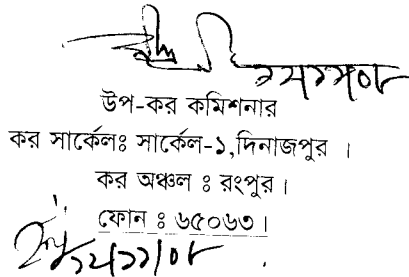 উপ-কর কমিশনার
কর সার্কেলঃ সার্কেল-১,দিনাজপুর ।
কর অঞ্চল ঃ রংপুর।
ফোন ঃ ৬৫০৬৩।